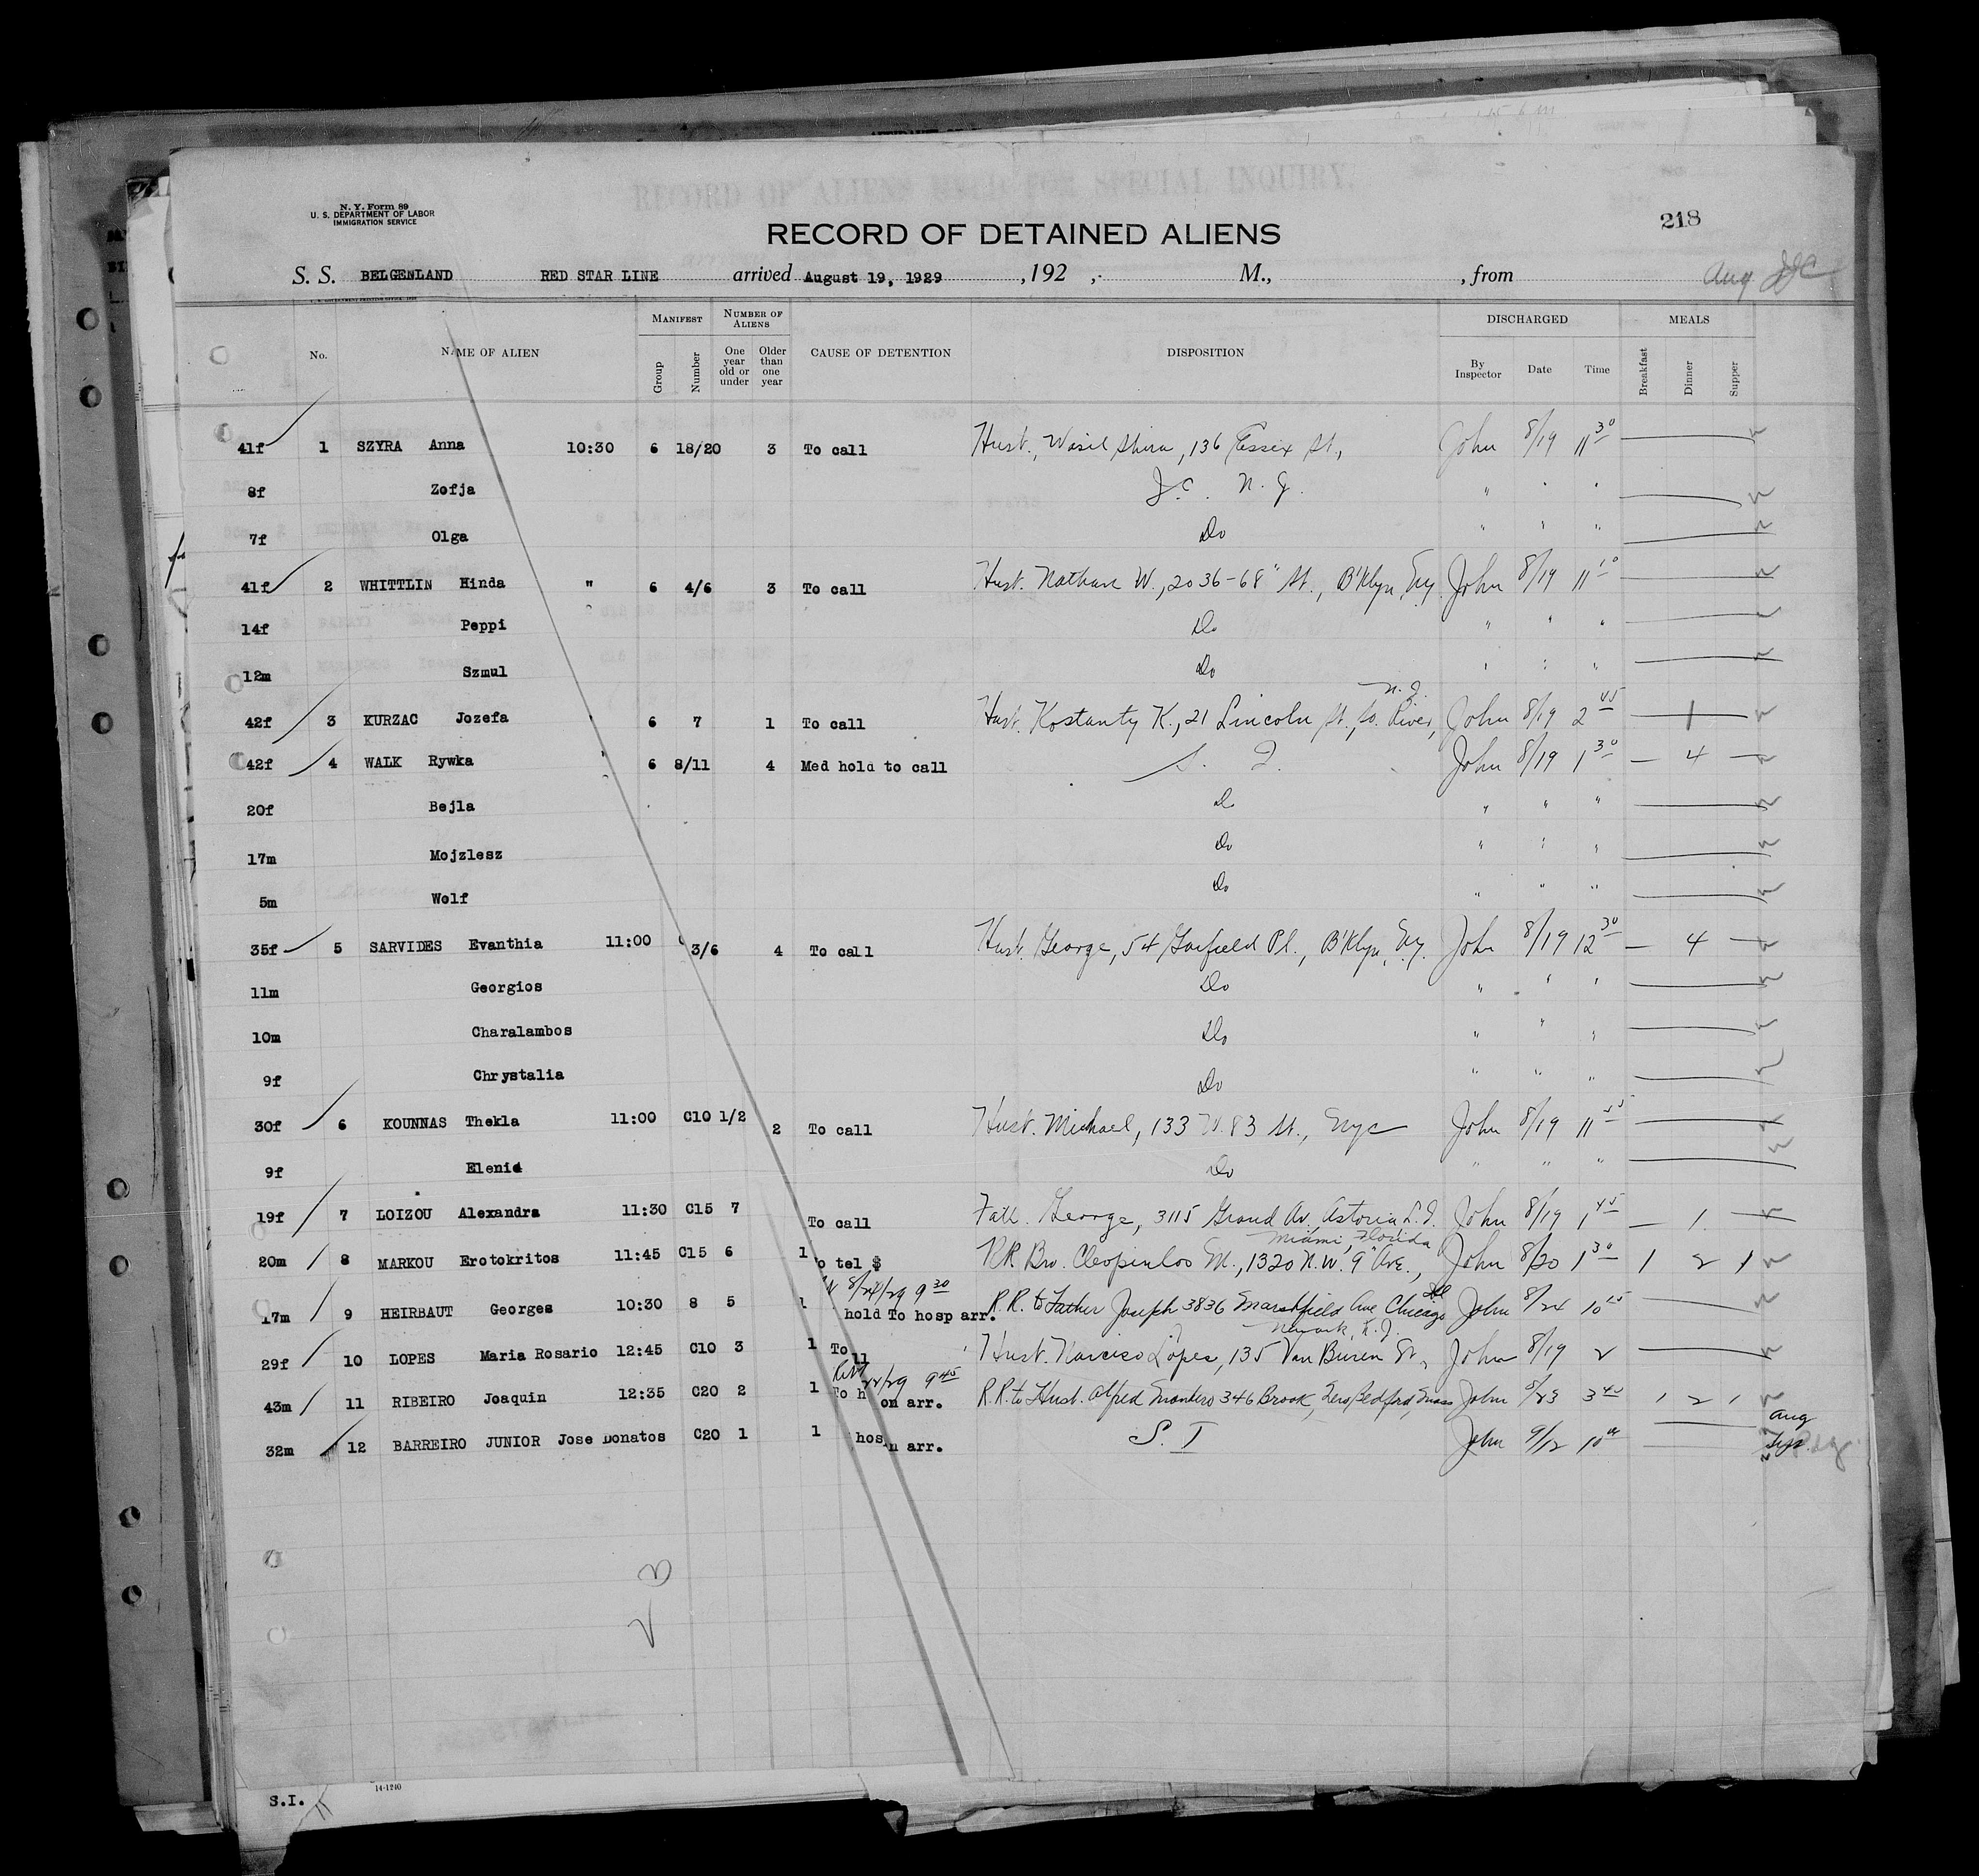 RECORD OF ALIENS HELD FOR SPECIAL INQUIRY.
N. Y. Form 89
U. S. DEPARTMENT OF LABOR
IMMIGRATION SERVICE
218
RECORD OF DETAINED ALIENS
S. S. BELGENLAND RED STAR LINE arrived August 19, 1929, 192 , M., , from Aug
MANIFEST NUMBER OF ALIENS DISCHARGED MEALS
No. NAME OF ALIEN Group Number One year old or under Older than one year CAUSE OF DETENTION DISPOSITION By Inspector Date Time Breakfast Dinner Supper
41f 1 SZYRA Anna 10:30 6 18/20 3 To call Husb., Wasil Shira, 136 Essex St., John 8/19 11 30
8f Zofja J.C. N.J. " " "
7f Olga Do " " "
41f 2 WHITTLIN Hinda " 6 4/6 3 To call Husb. Nathan W., 2036-68" St., B'klyn, Ny. John 8/19 11 10
14f Peppi Do " " "
12m Szmul Do " " "
N.J.
42f 3 KURZAC Jozefa " 6 7 1 To call Husb. Kostanty K., 21 Lincoln St., So. River, John 8/19 2 45 1
42f 4 WALK Rywka " 6 8/11 4 Med hold to call S. I. John 8/19 1 30 4
20f Bejla Do " " "
17m Mojzlesz Do " " "
5m Wolf Do " " "
35f 5 SARVIDES Evanthia 11:00 3/6 4 To call Husb. George, 54 Garfield Pl., B'klyn, Ny. John 8/19 12 30 4
11m Georgios Do " " "
10m Charalambos Do " " "
9f Chrystalia Do " " "
30f 6 KOUNNAS Thekla 11:00 C10 1/2 2 To call Husb. Michael, 133 W. 83 St., Nyc John 8/19 11 55
9f Eleni Do " " "
19f 7 LOIZOU Alexandra 11:30 C15 7 To call Fath. George, 3115 Grand Av. Astoria, L.I. John 8/19 1 45 1
Miami, Florida
20m 8 MARKOU Erotokritos 11:45 C15 6 1 o tel $ RR Bro. Cleopinlos M., 1320 N.W. 9" Ave., John 8/20 1 30 1 2 1
8/24/29 9 30
17m 9 HEIRBAUT Georges 10:30 8 5 1 hold To hosp arr. R.R. to Father Joseph 3836 Marshfield Ave Chicago Ill John 8/24 10 15
Newark, N.J.
29f 10 LOPES Maria Rosario 12:45 C10 3 1 To ll Husb. Narciso Lopes, 135 Van Buren St., John 8/19 2
22/29 9 45
43m 11 RIBEIRO Joaquin 12:35 C20 2 1 To h on arr. R.R. to Husb. Alfred Montero 346 Brook, New Bedford, Mass John 8/23 3 40 1 2 1
Aug
32m 12 BARREIRO JUNIOR Jose Donatos C20 1 1 hos n arr. S. I John 9/12 10 00 Sep.
23
S.I.
14-1240